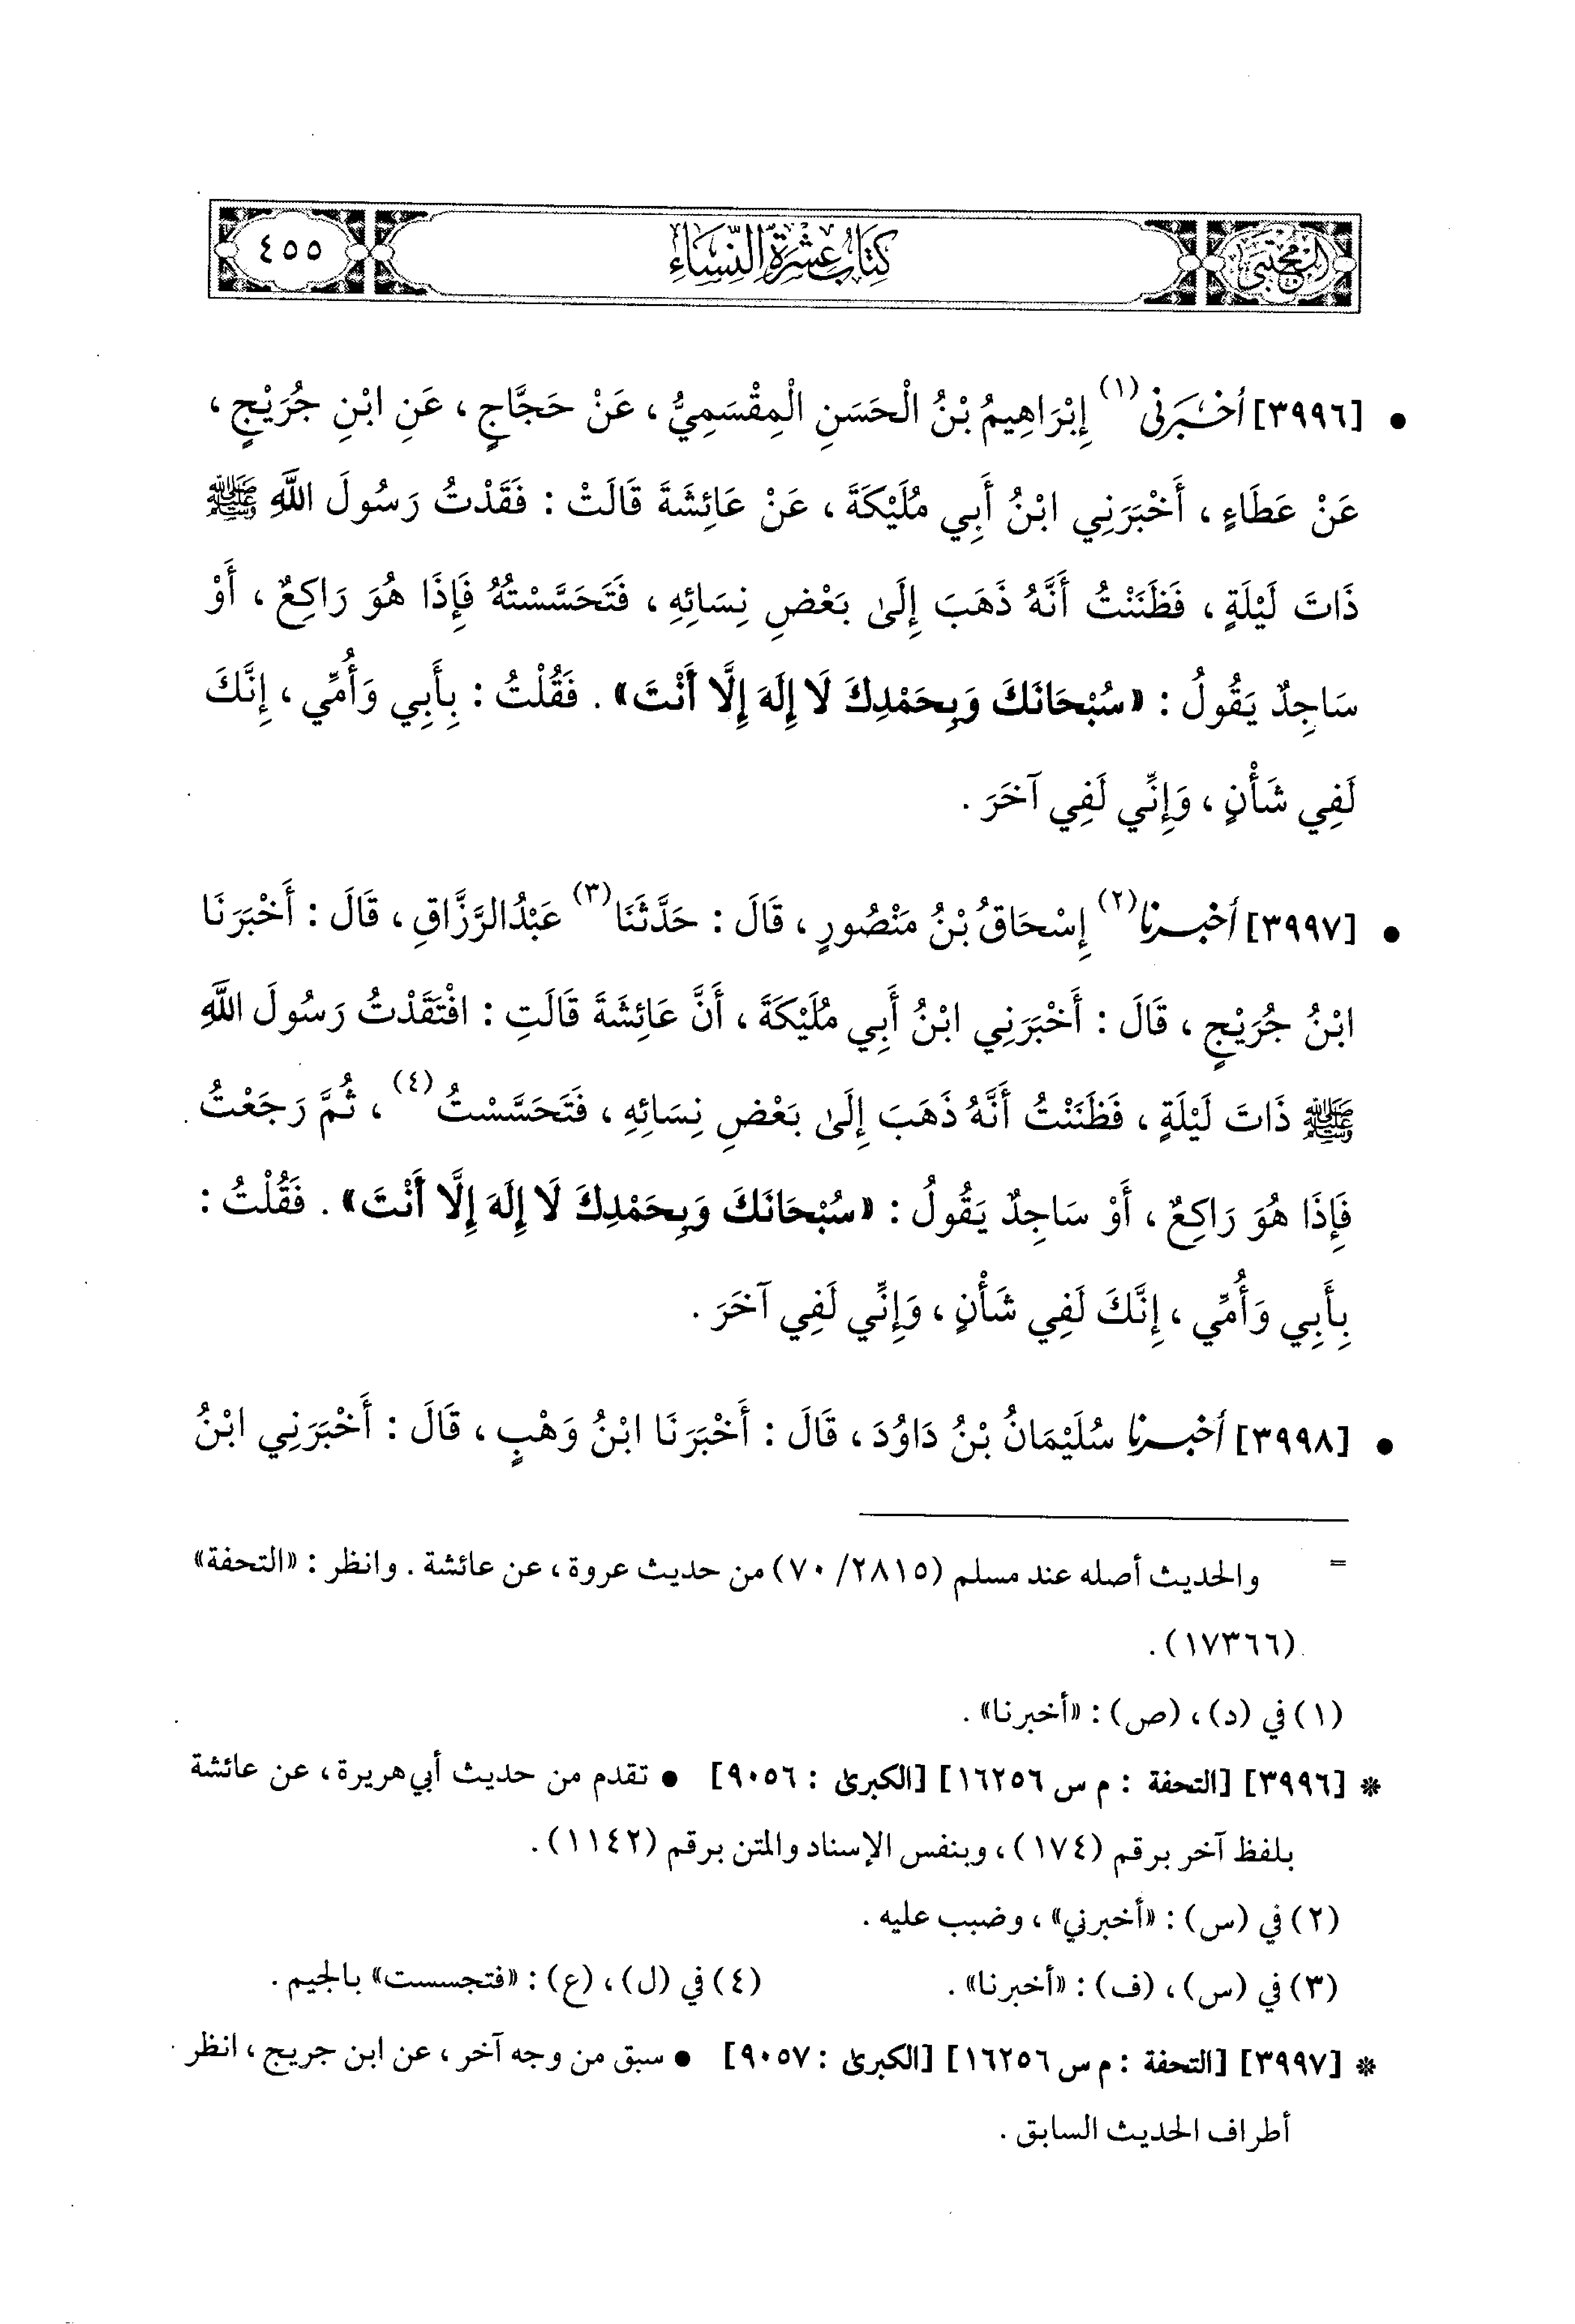 المجتبى كتاب عشرة النساء ٤٥٥
• [٣٩٩٦] أَخْبَرَنِي(١) إِبْرَاهِيمُ بْنُ الْحَسَنِ الْمِقْسَمِيُّ، عَنْ حَجَّاجٍ، عَنِ ابْنِ جُرَيْجٍ،
عَنْ عَطَاءٍ، أَخْبَرَنِي ابْنُ أَبِي مُلَيْكَةَ، عَنْ عَائِشَةَ قَالَتْ : فَقَدْتُ رَسُولَ اللَّهِ ﷺ
ذَاتَ لَيْلَةٍ، فَظَنَنْتُ أَنَّهُ ذَهَبَ إِلَىٰ بَعْضِ نِسَائِهِ، فَتَحَسَّسْتُهُ فَإِذَا هُوَ رَاكِعٌ، أَوْ
سَاجِدٌ يَقُولُ : «سُبْحَانَكَ وَبِحَمْدِكَ لَا إِلَهَ إِلَّا أَنْتَ» . فَقُلْتُ : بِأَبِي وَأُمِّي، إِنَّكَ
لَفِي شَأْنٍ، وَإِنِّي لَفِي آخَرَ .
• [٣٩٩٧] أخبرنا(٢) إِسْحَاقُ بْنُ مَنْصُورٍ، قَالَ : حَدَّثَنَا(٣) عَبْدُالرَّزَّاقِ، قَالَ : أَخْبَرَنَا
ابْنُ جُرَيْجٍ، قَالَ : أَخْبَرَنِي ابْنُ أَبِي مُلَيْكَةَ، أَنَّ عَائِشَةَ قَالَتِ : افْتَقَدْتُ رَسُولَ اللَّهِ
ﷺ ذَاتَ لَيْلَةٍ، فَظَنَنْتُ أَنَّهُ ذَهَبَ إِلَىٰ بَعْضِ نِسَائِهِ، فَتَحَسَّسْتُ(٤)، ثُمَّ رَجَعْتُ
فَإِذَا هُوَ رَاكِعٌ، أَوْ سَاجِدٌ يَقُولُ : «سُبْحَانَكَ وَبِحَمْدِكَ لَا إِلَهَ إِلَّا أَنْتَ» . فَقُلْتُ :
بِأَبِي وَأُمِّي، إِنَّكَ لَفِي شَأْنٍ، وَإِنِّي لَفِي آخَرَ .
• [٣٩٩٨] أخبرنا سُلَيْمَانُ بْنُ دَاوُدَ، قَالَ : أَخْبَرَنَا ابْنُ وَهْبٍ، قَالَ : أَخْبَرَنِي ابْنُ
= والحديث أصله عند مسلم (٢٨١٥/ ٧٠) من حديث عروة، عن عائشة . وانظر : «التحفة»
(١٧٣٦٦).
(١) في (د)، (ص) : «أخبرنا» .
* [٣٩٩٦] [التحفة : م س ١٦٢٥٦] [الكبرىٰ : ٩٠٥٦] • تقدم من حديث أبي هريرة، عن عائشة
بلفظ آخر برقم (١٧٤)، وبنفس الإسناد والمتن برقم (١١٤٢).
(٢) في (س) : «أخبرني»، وضبب عليه .
(٣) في (س)، (ف) : «أخبرنا» . (٤) في (ل)، (ع) : «فتجسست» بالجيم .
* [٣٩٩٧] [التحفة : م س ١٦٢٥٦] [الكبرىٰ : ٩٠٥٧] • سبق من وجه آخر، عن ابن جريج، انظر
أطراف الحديث السابق .